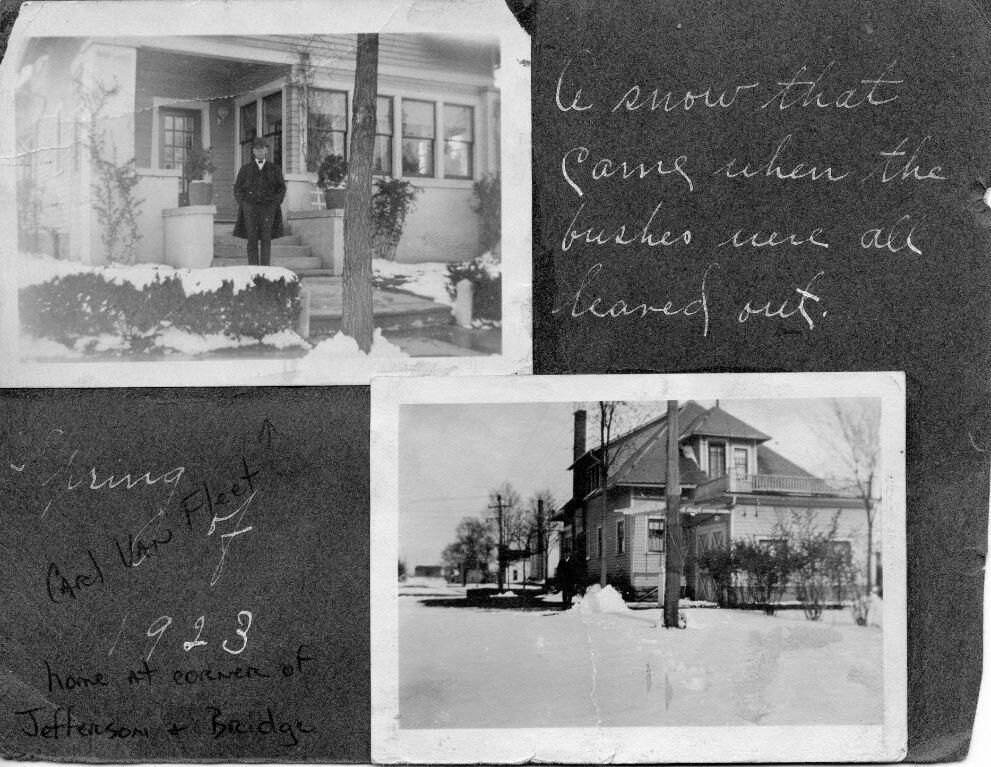 A snow that
came when the
bushes were all
leaved out.
Spring
of
1923
Carl Van Fleet
home at corner of
Jefferson + Bridge